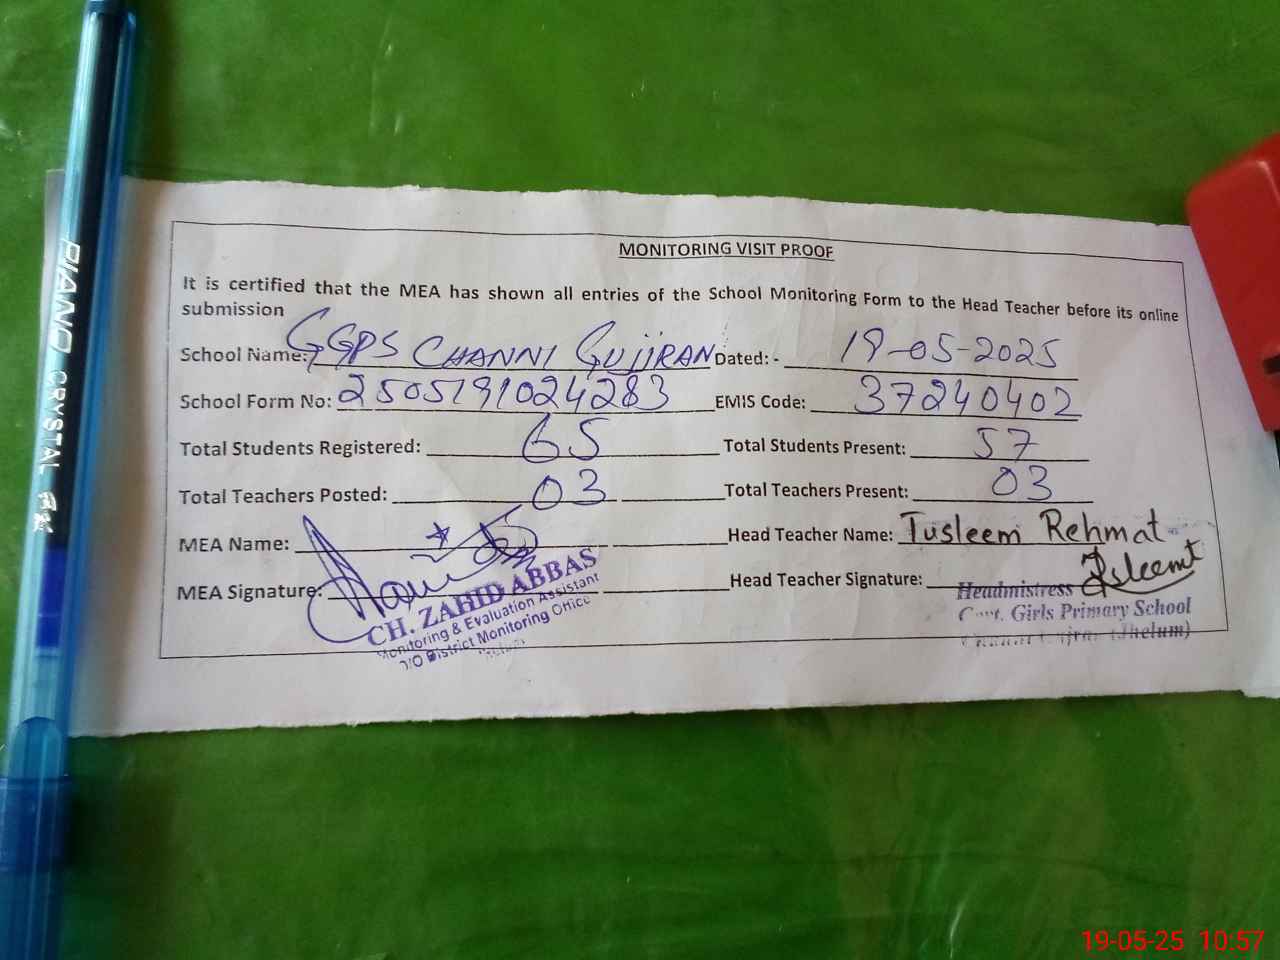 PIANO CRYSTAL
MONITORING VISIT PROOF
It is certified that the MEA has shown all entries of the School Monitoring Form to the Head Teacher before its online
submission
School Name: GGPS CHANNI GUJJRAN Dated: - 19-05-2025
School Form No: 2505191024283 EMIS Code: 37240402
Total Students Registered: 65 Total Students Present: 57
Total Teachers Posted: 03 Total Teachers Present: 03
MEA Name: Head Teacher Name: Tusleem Rehmat
MEA Signature: Head Teacher Signature: Tsleemt
CH. ZAHID ABBAS
Monitoring & Evaluation Assistant
O/O District Monitoring Office
Headmistress
Govt. Girls Primary School
(Jhelum)
19-05-25 10:57